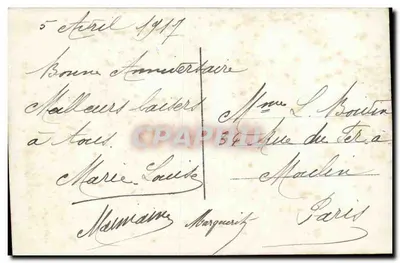 5 Avril 1917
Bonne Anniversaire
Meilleurs baisers
à tous.
Marie-Louise
Mme L. Boutin
54 Rue du Fer à
Moulin
Paris
Marguerite
CPARAMA